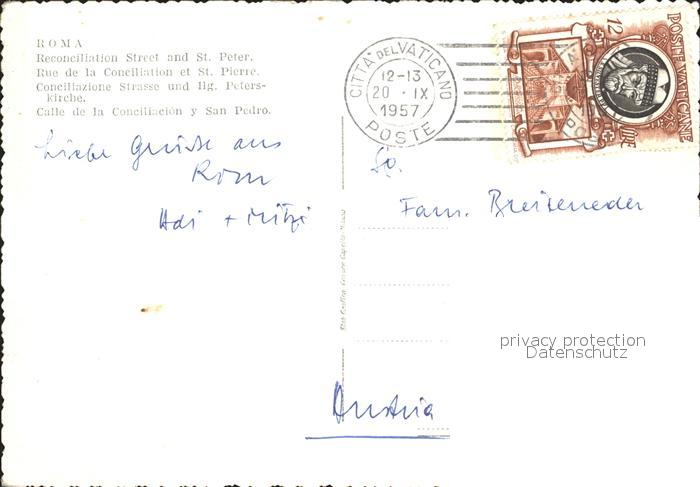 ROMA
Reconciliation Street and St. Peter.
Rue de la Conciliation et St. Pierre.
Conciliazione Strasse und Hg. Peters-
kirche.
Calle de la Conciliación y San Pedro.
CITTÀ DEL VATICANO
12-13
20 · IX
1957
POSTE
POSTE VATICANE
12
LIRE
Liebe Grüsse aus
Rom
Adi + Mitzi
Fam. Breiteneder
privacy protection
Datenschutz
Austria